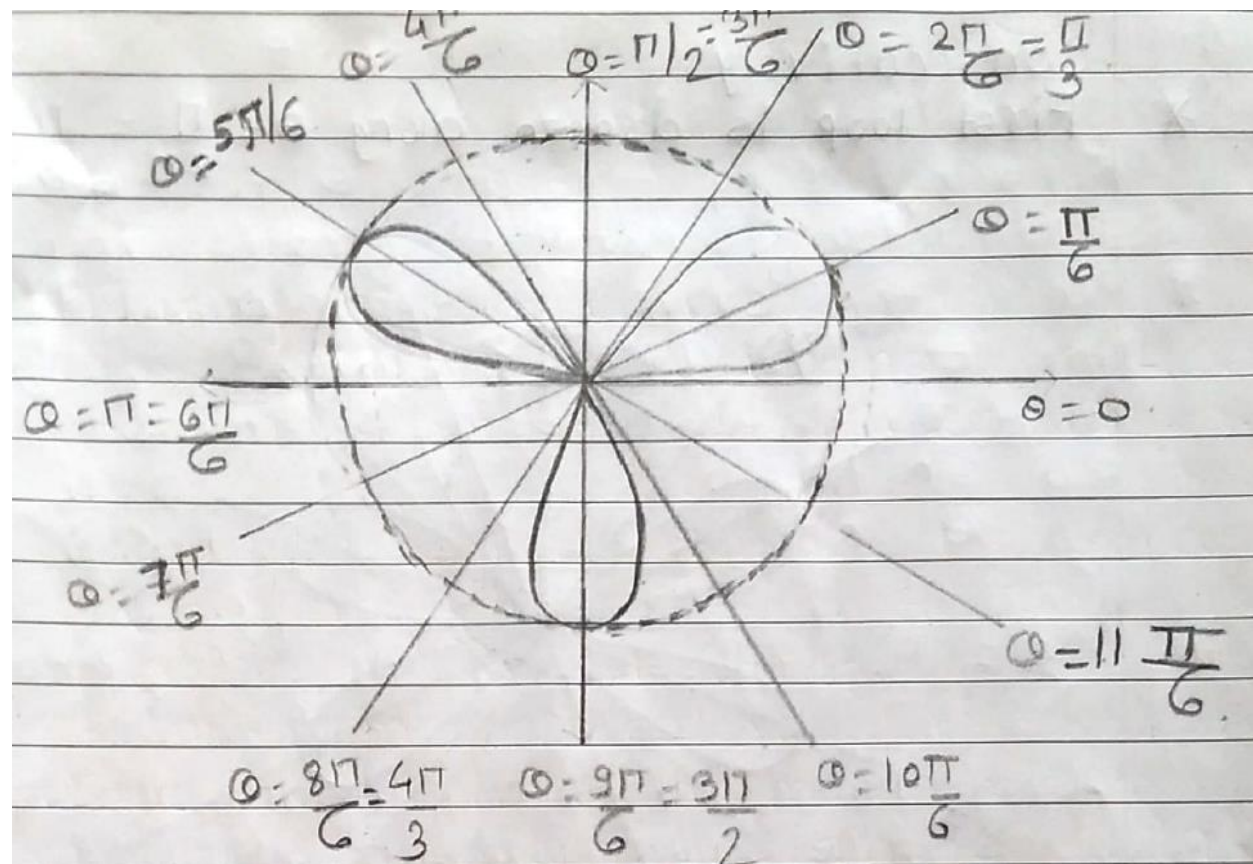 θ = 4π/6
θ = π/2 = 3π/6
θ = 2π/6 = π/3
θ = 5π/6
θ = π/6
θ = π = 6π/6
θ = 0
θ = 7π/6
θ = 11 π/6
θ = 8π/6 = 4π/3
θ = 9π/6 = 3π/2
θ = 10π/6